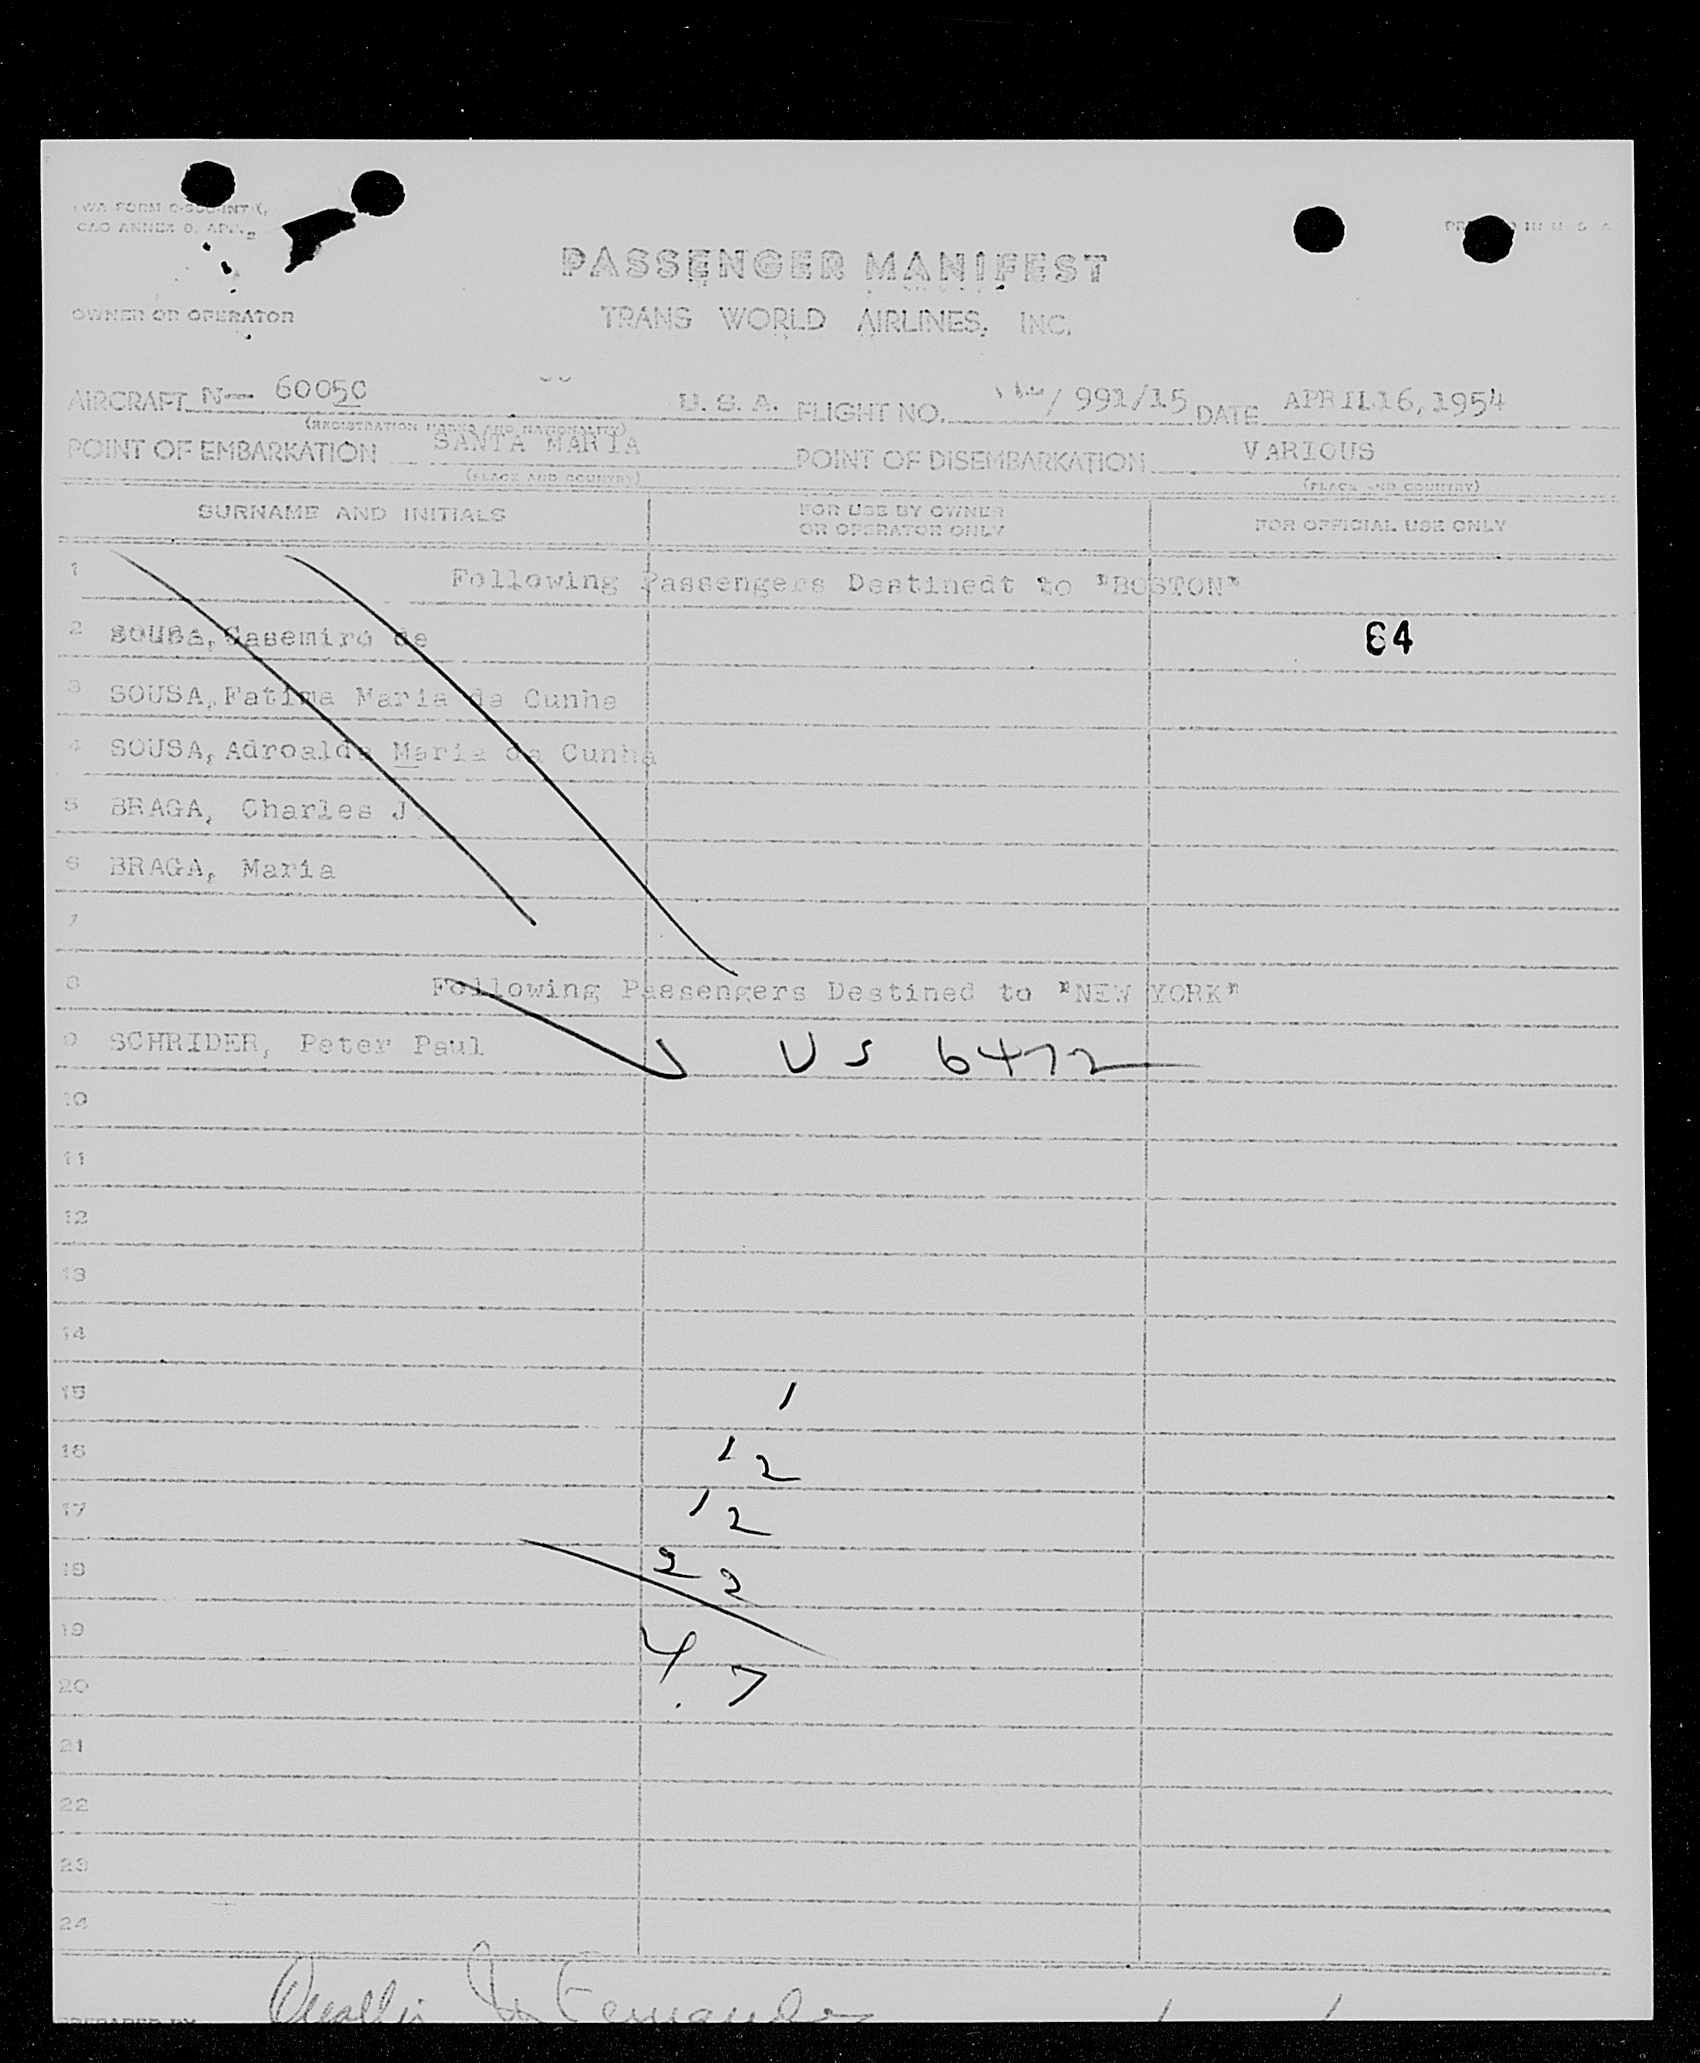 PASSENGER MANIFEST
OWNER OR OPERATOR TRANS WORLD AIRLINES, INC.
AIRCRAFT N— 6005C U. S. A. FLIGHT NO. / 991/15 DATE APRIL 16, 1954
(REGISTRATION MARKS AND NATIONALITY)
POINT OF EMBARKATION SANTA MARIA POINT OF DISEMBARKATION VARIOUS
(PLACE AND COUNTRY) (PLACE AND COUNTRY)
SURNAME AND INITIALS FOR USE BY OWNER OR OPERATOR ONLY FOR OFFICIAL USE ONLY
1 Following Passengers Destinedt to "BOSTON"
2 SOUSA, Casemiro de 64
3 SOUSA, Fatima Maria da Cunha
4 SOUSA, Adroaldo Maria da Cunha
5 BRAGA, Charles J
6 BRAGA, Maria
7
8 Following Passengers Destined to "NEW YORK"
9 SCHRIDER, Peter Paul US 6472
10
11
12
13
14
15 1
16 1 2
17 1 2
18 2 2
19 4 7
20
21
22
23
24
PREPARED BY